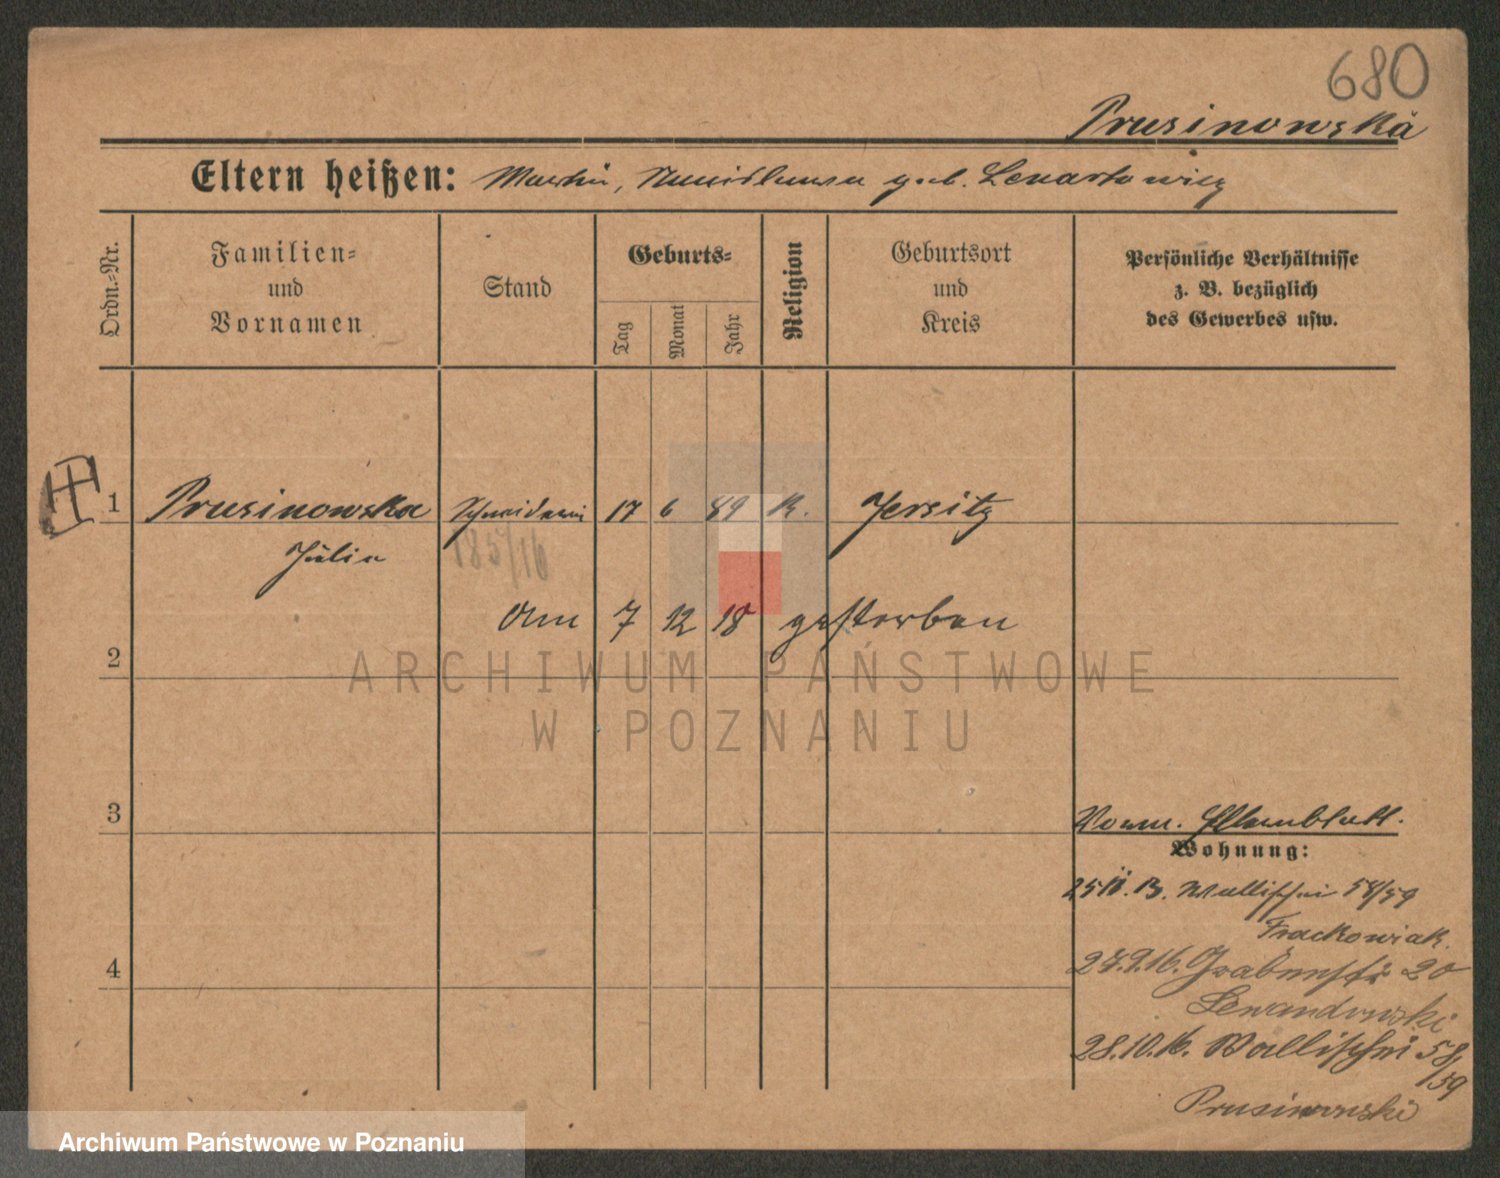 680
Prusinowska
Eltern heißen: Martin, Stanislawa geb. Lenartowicz
Ordn.=Nr.
Familien=
und
Vornamen
Stand
Geburts=
Tag
Monat
Jahr
Religion
Geburtsort
und
Kreis
Persönliche Verhältnisse
z. B. bezüglich
des Gewerbes usw.
1 Prusinowska Schneiderin 17 6 89 K. Jersitz
Julia
185/16
Am 7 12 18 gestorben
2
ARCHIWUM PAŃSTWOWE
W POZNANIU
3
Vorm. Elternblatt.
Wohnung:
Wallischei 58/59
Frackowiak.
4
27.9.16. Grabenstr 20
Lewandowski
28.10.16. Wallischei 58/
/59
Prusinowski
Archiwum Państwowe w Poznaniu